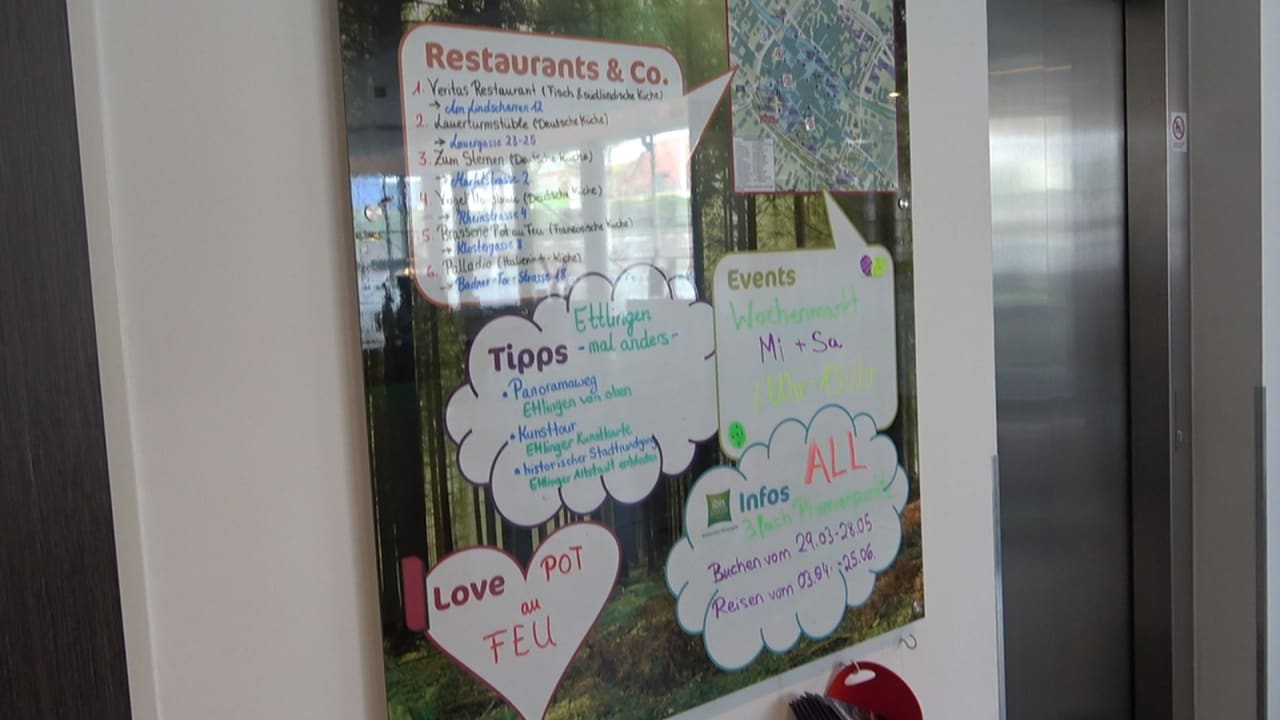 Restaurants & Co.
1. Veritas Restaurant (Tisch & südländische Küche)
→ Am Lindscharren 12
2. Lauerturmstüble (Deutsche Küche)
→ Lauergasse 23-25
3. Zum Sternen (Deutsche Küche)
→ Marktstrasse 2
4. (Deutsche Küche)
→ Rheinstrasse 4
5. Brasserie Pot au Feu (Französische Küche)
→ Klostergasse 8
6. Palladio (Italienisch. Küche)
→ Badner-Tor-Strasse 18
Tipps
Ettlingen
- mal anders -
• Panoramaweg
Ettlingen von oben
• Kunsttour
Ettlinger Kunstkarte
• historischer Stadtrundgang
Ettlinger entdecken
Events
Wochenmarkt
Mi + Sa
7 Uhr-
ibis
Infos
ALL
3 fach Prämienpunkte
Buchen vom 29.03-28.05
Reisen vom 03.04.-25.06.
Love POT
au
FEU